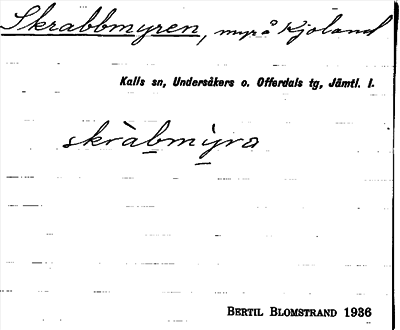 Skrabbmyren, myr å Kjoland
Kalls sn, Undersåkers o. Offerdals tg, Jämtl. l.
skràbmỳra
BERTIL BLOMSTRAND 1936